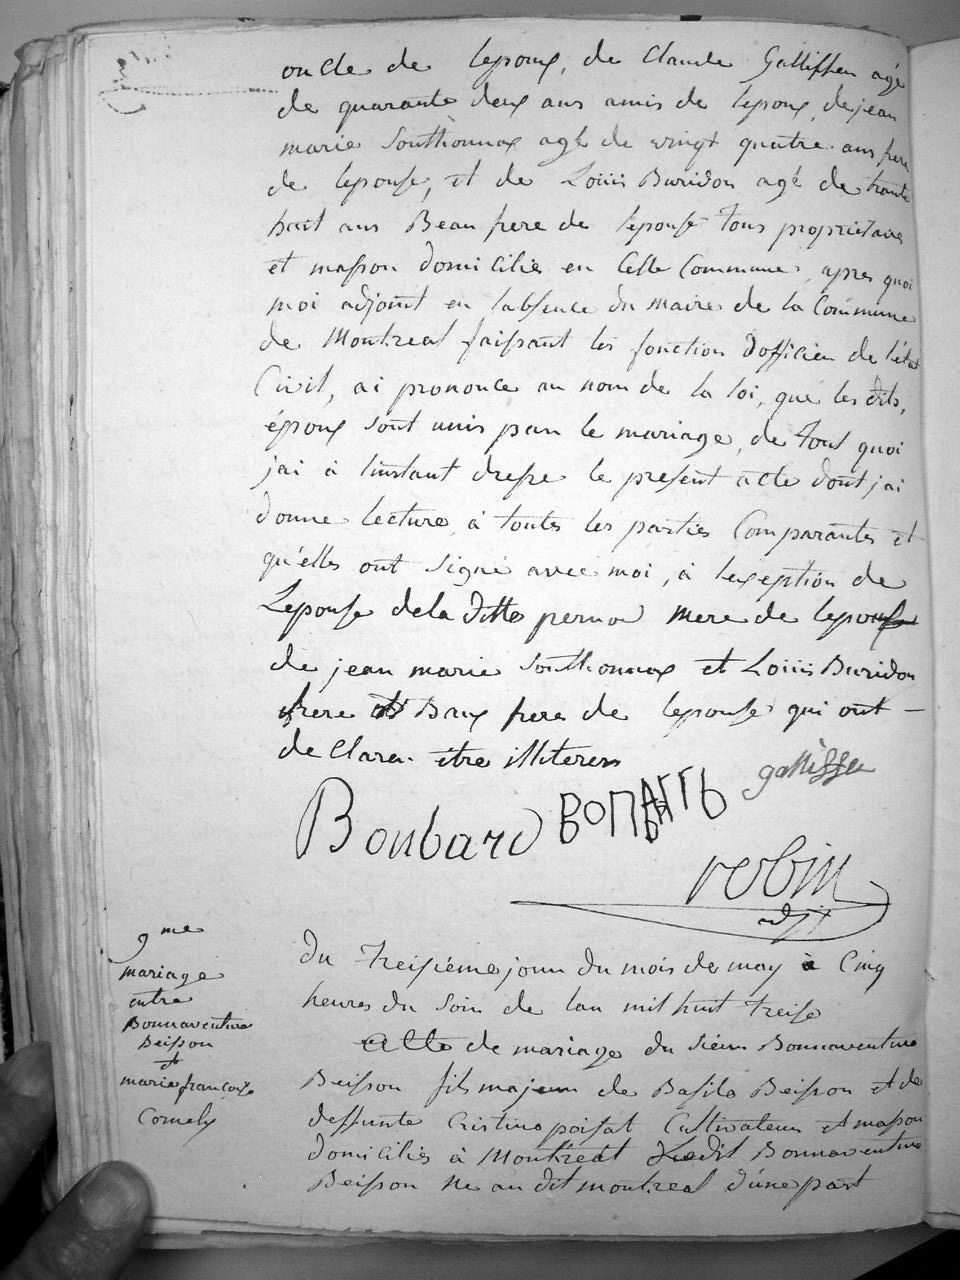 oncle de lepoux, de Claude Galliffen agé
de quarante deux ans amis de lepoux, de jean
marie Southonnax agé de vingt quatre ans frere
de lepouse, et de Louis Buridon agé de trante
huit ans Beau frere de lepouse tous propriétaire
et masson domicilié en Cette Commune, apres quoi
moi adjoint en labsence du maire de la Commune
de Montreal faissant les fonction d'officier de l'état
Civil, ai prononce au nom de la loi, que les dits,
époux sont unis par le mariage, de tout quoi
jai à linstant dresse le present acte dont jai
donne lecture, à toutes les parties Comparantes et
qu'elles ont signé avec moi, à lexeption de
Lepouse de la ditte mere de lepouse
de jean marie Southonnax et Louis Buridon
frere et Baux frere de lepouse qui ont —
de Clarer être illiterers
Boubard galliffen
robin
adjt
9me
mariage
entre
Bonnaventure
Beisson
et
marie françoise
Cornely
Du treisiéme jour du mois de may à Cinq
heures du soir de lan mil huit treise
Acte de mariage du siéur Bonnaventure
Beisson fils majeur de Basile Beisson et de
deffunte Cristine poisat Cultivateur et masson
domiciliés à Montreal Ledit Bonnaventure
Beisson ne au dit montreal d'une part